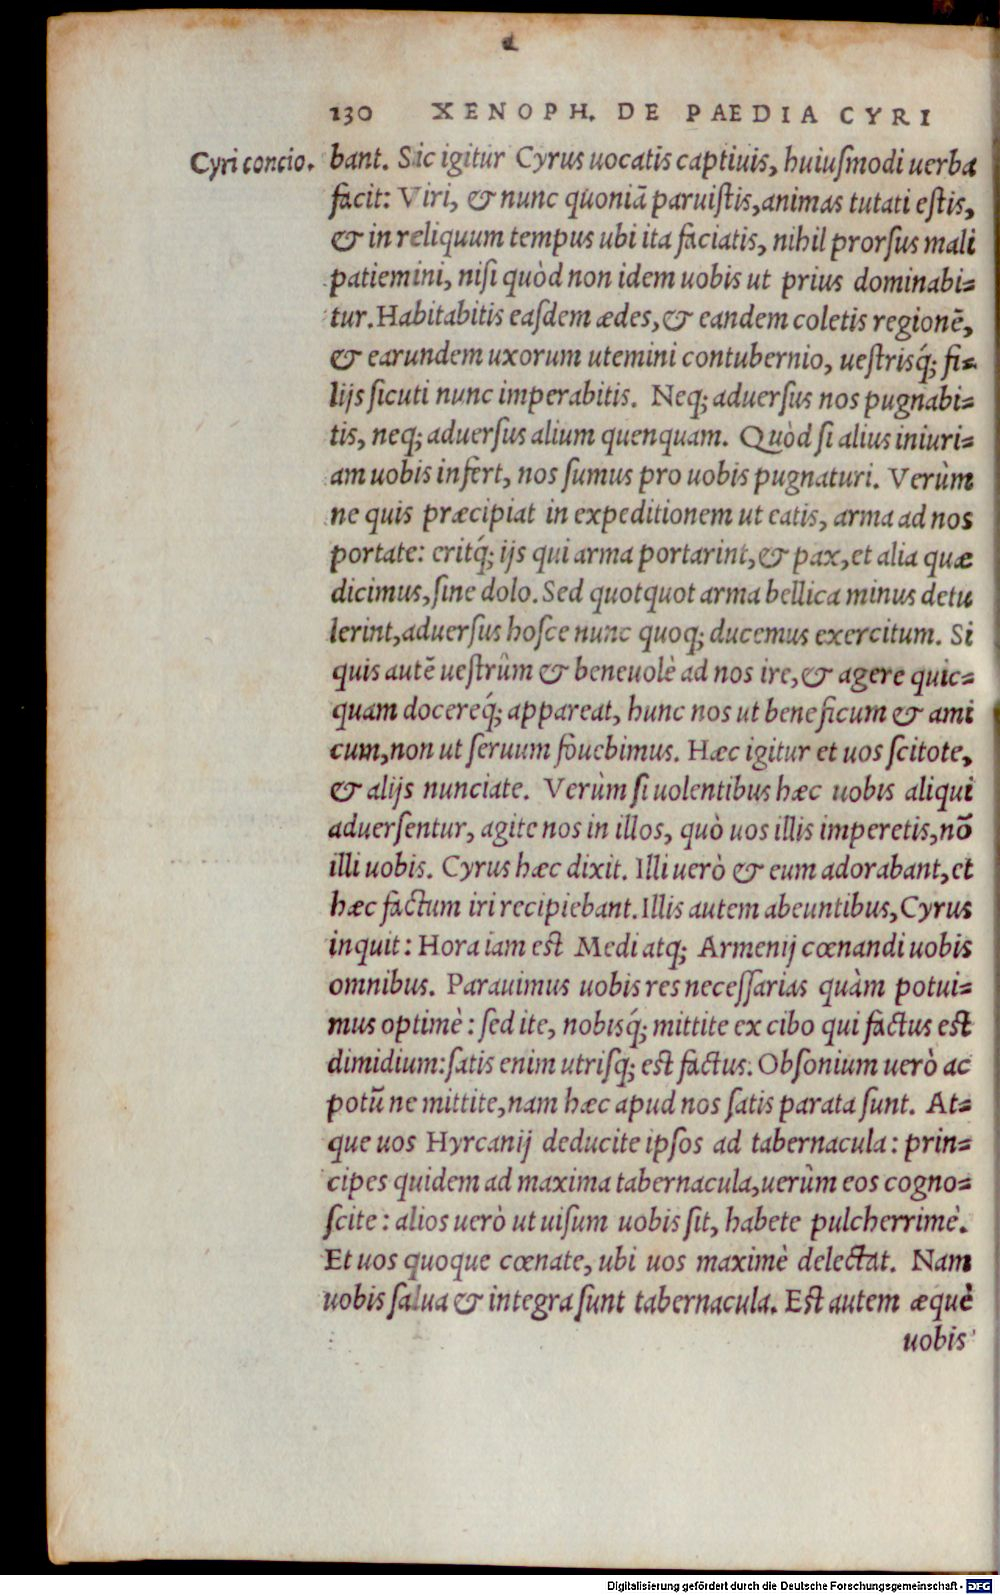 130 XENOPH. DE PAEDIA CYRI
Cyri concio. bant. Sic igitur Cyrus uocatis captiuis, huiuſmodi uerba
facit: Viri, & nunc quoniā paruiſtis, animas tutati eſtis,
& in reliquum tempus ubi ita faciatis, nihil prorſus mali
patiemini, niſi quòd non idem uobis ut prius dominabi⸗
tur. Habitabitis eaſdem ædes, & eandem coletis regionē,
& earundem uxorum utemini contubernio, ueſtrisq́; fi⸗
lijs ſicuti nunc imperabitis. Neq; aduerſus nos pugnabi⸗
tis, neq; aduerſus alium quenquam. Quòd ſi alius iniuri⸗
am uobis infert, nos ſumus pro uobis pugnaturi. Verùm
ne quis præcipiat in expeditionem ut eatis, arma ad nos
portate: eritq́; ijs qui arma portarint, & pax, et alia quæ
dicimus, ſine dolo. Sed quotquot arma bellica minus detu
lerint, aduerſus hoſce nunc quoq; ducemus exercitum. Si
quis autē ueſtrûm & beneuolè ad nos ire, & agere quic⸗
quam docereq́; appareat, hunc nos ut beneficum & ami
cum, non ut ſeruum fouebimus. Hæc igitur et uos ſcitote,
& alijs nunciate. Verùm ſi uolentibus hæc uobis aliqui
aduerſentur, agite nos in illos, quò uos illis imperetis, nō
illi uobis. Cyrus hæc dixit. Illi uerò & eum adorabant, et
hæc factum iri recipiebant. Illis autem abeuntibus, Cyrus
inquit: Hora iam est Medi atq; Armenij cœnandi uobis
omnibus. Parauimus uobis res neceſſarias quàm potui⸗
mus optimè: ſed ite, nobisq́; mittite ex cibo qui factus est
dimidium: ſatis enim utriſq; est factus. Obſonium uerò ac
potū ne mittite, nam hæc apud nos ſatis parata ſunt. At⸗
que uos Hyrcanij deducite ipſos ad tabernacula: prin⸗
cipes quidem ad maxima tabernacula, uerùm eos cogno⸗
ſcite: alios uerò ut uiſum uobis ſit, habete pulcherrimè.
Et uos quoque cœnate, ubi uos maximè delectat. Nam
uobis ſalua & integra ſunt tabernacula. Est autem æquè
uobis
Digitalisierung gefördert durch die Deutsche Forschungsgemeinschaft - DFG